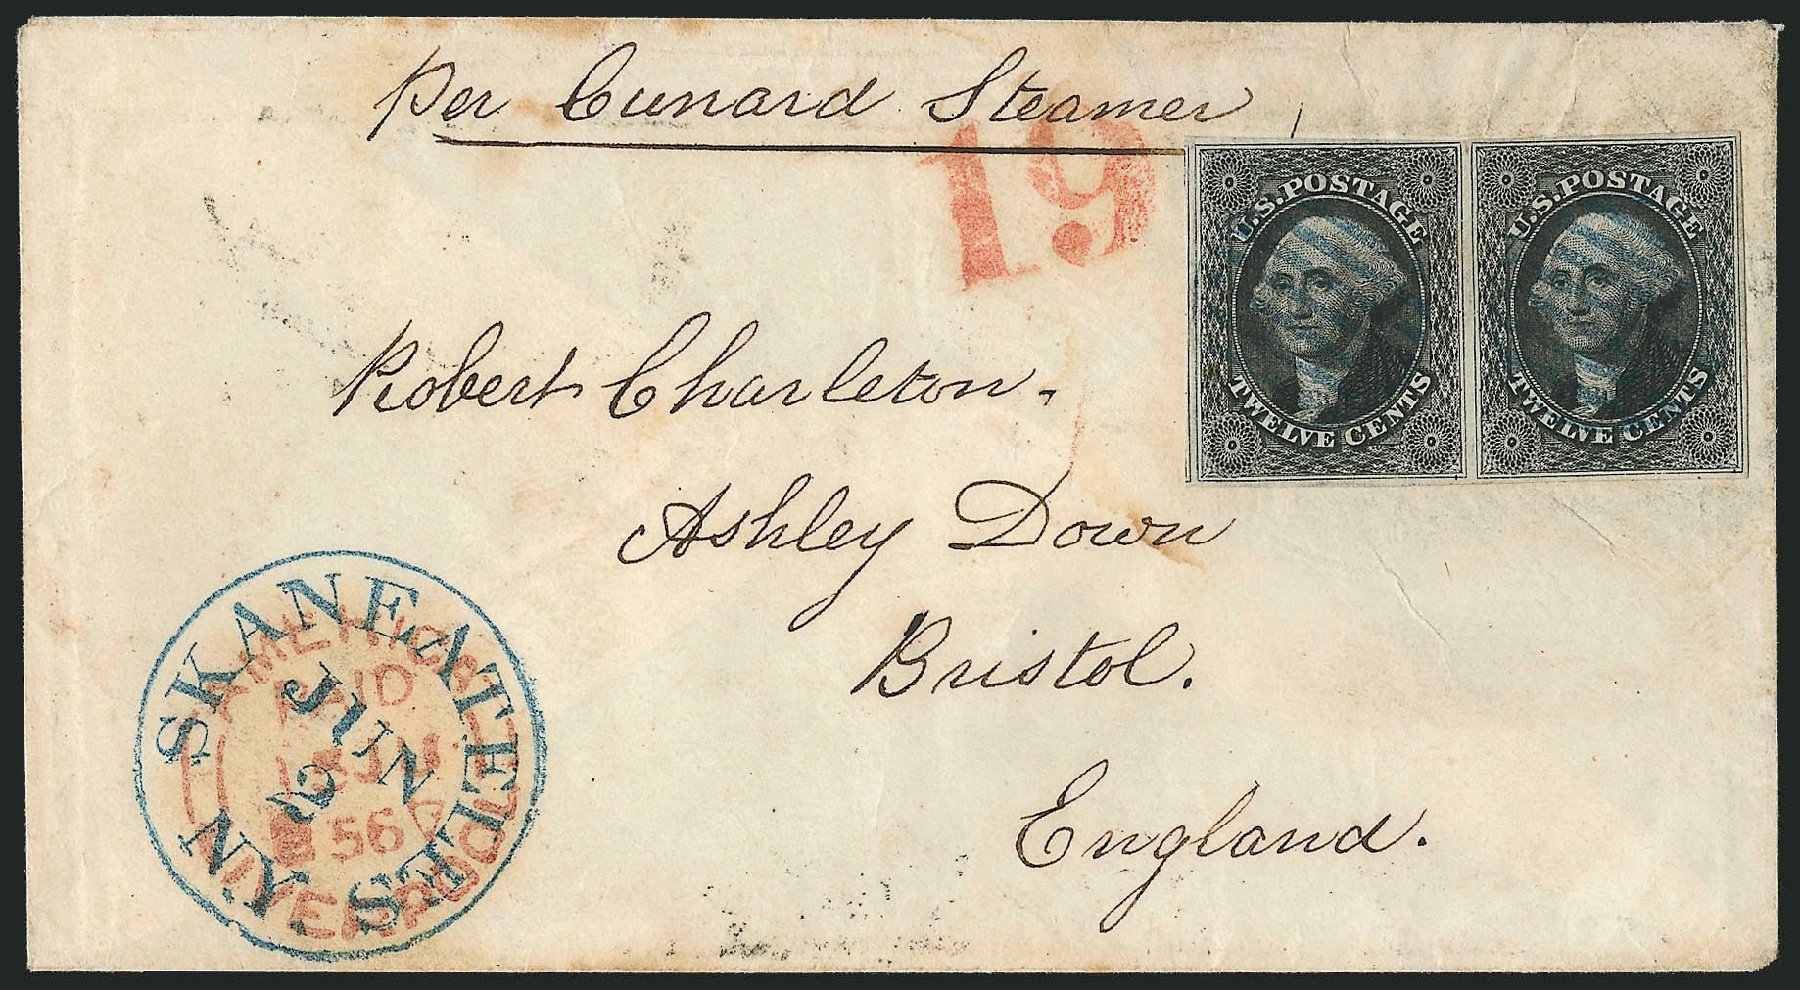 Per Cunard Steamer
19
U.S. POSTAGE
TWELVE CENTS
U.S. POSTAGE
TWELVE CENTS
Robert Charleton.
Ashley Down
Bristol.
England.
SKANEATELES N.Y.
JUN
2
AMERICA
PAID
LIVERPOOL
56